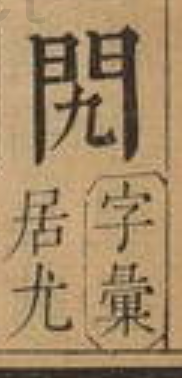 𨳊
字彙
居尤